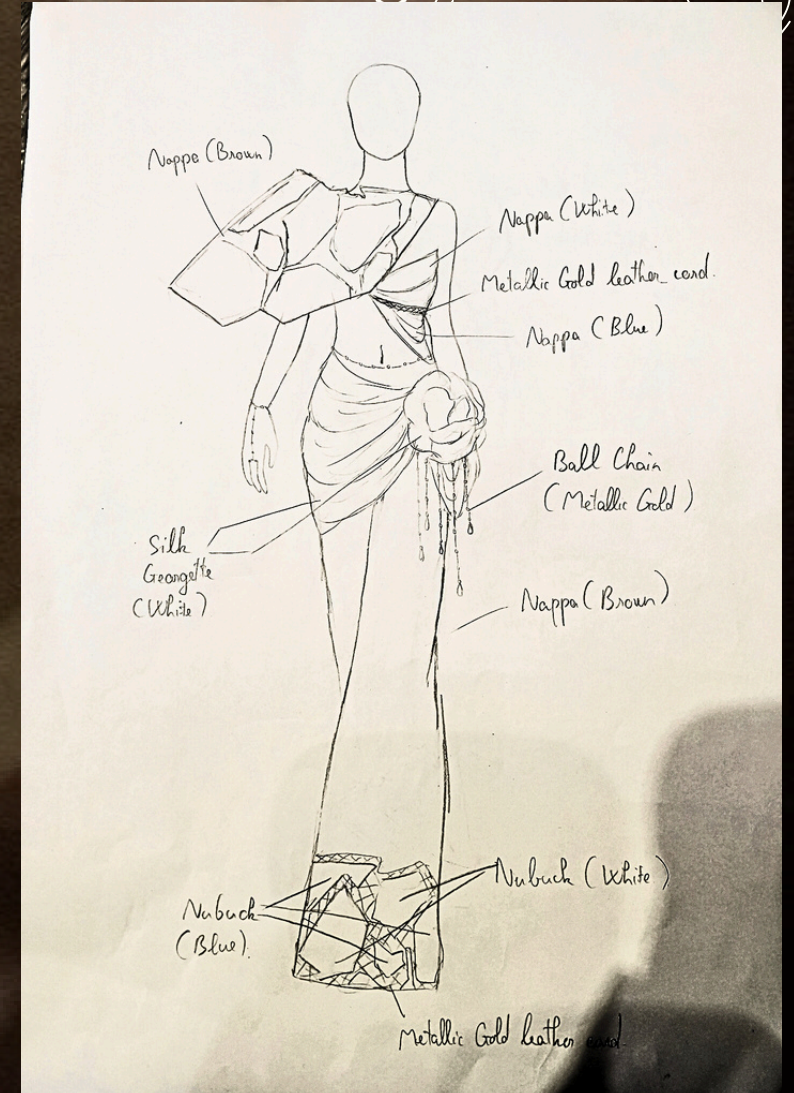 Nappa (Brown)
Nappa (White)
Metallic Gold leather cord.
Nappa (Blue)
Ball Chain
(Metallic Gold)
Silk
Georgette
(White)
Nappa (Brown)
Nubuck (White)
Nubuck
(Blue).
Metallic Gold leather cord.